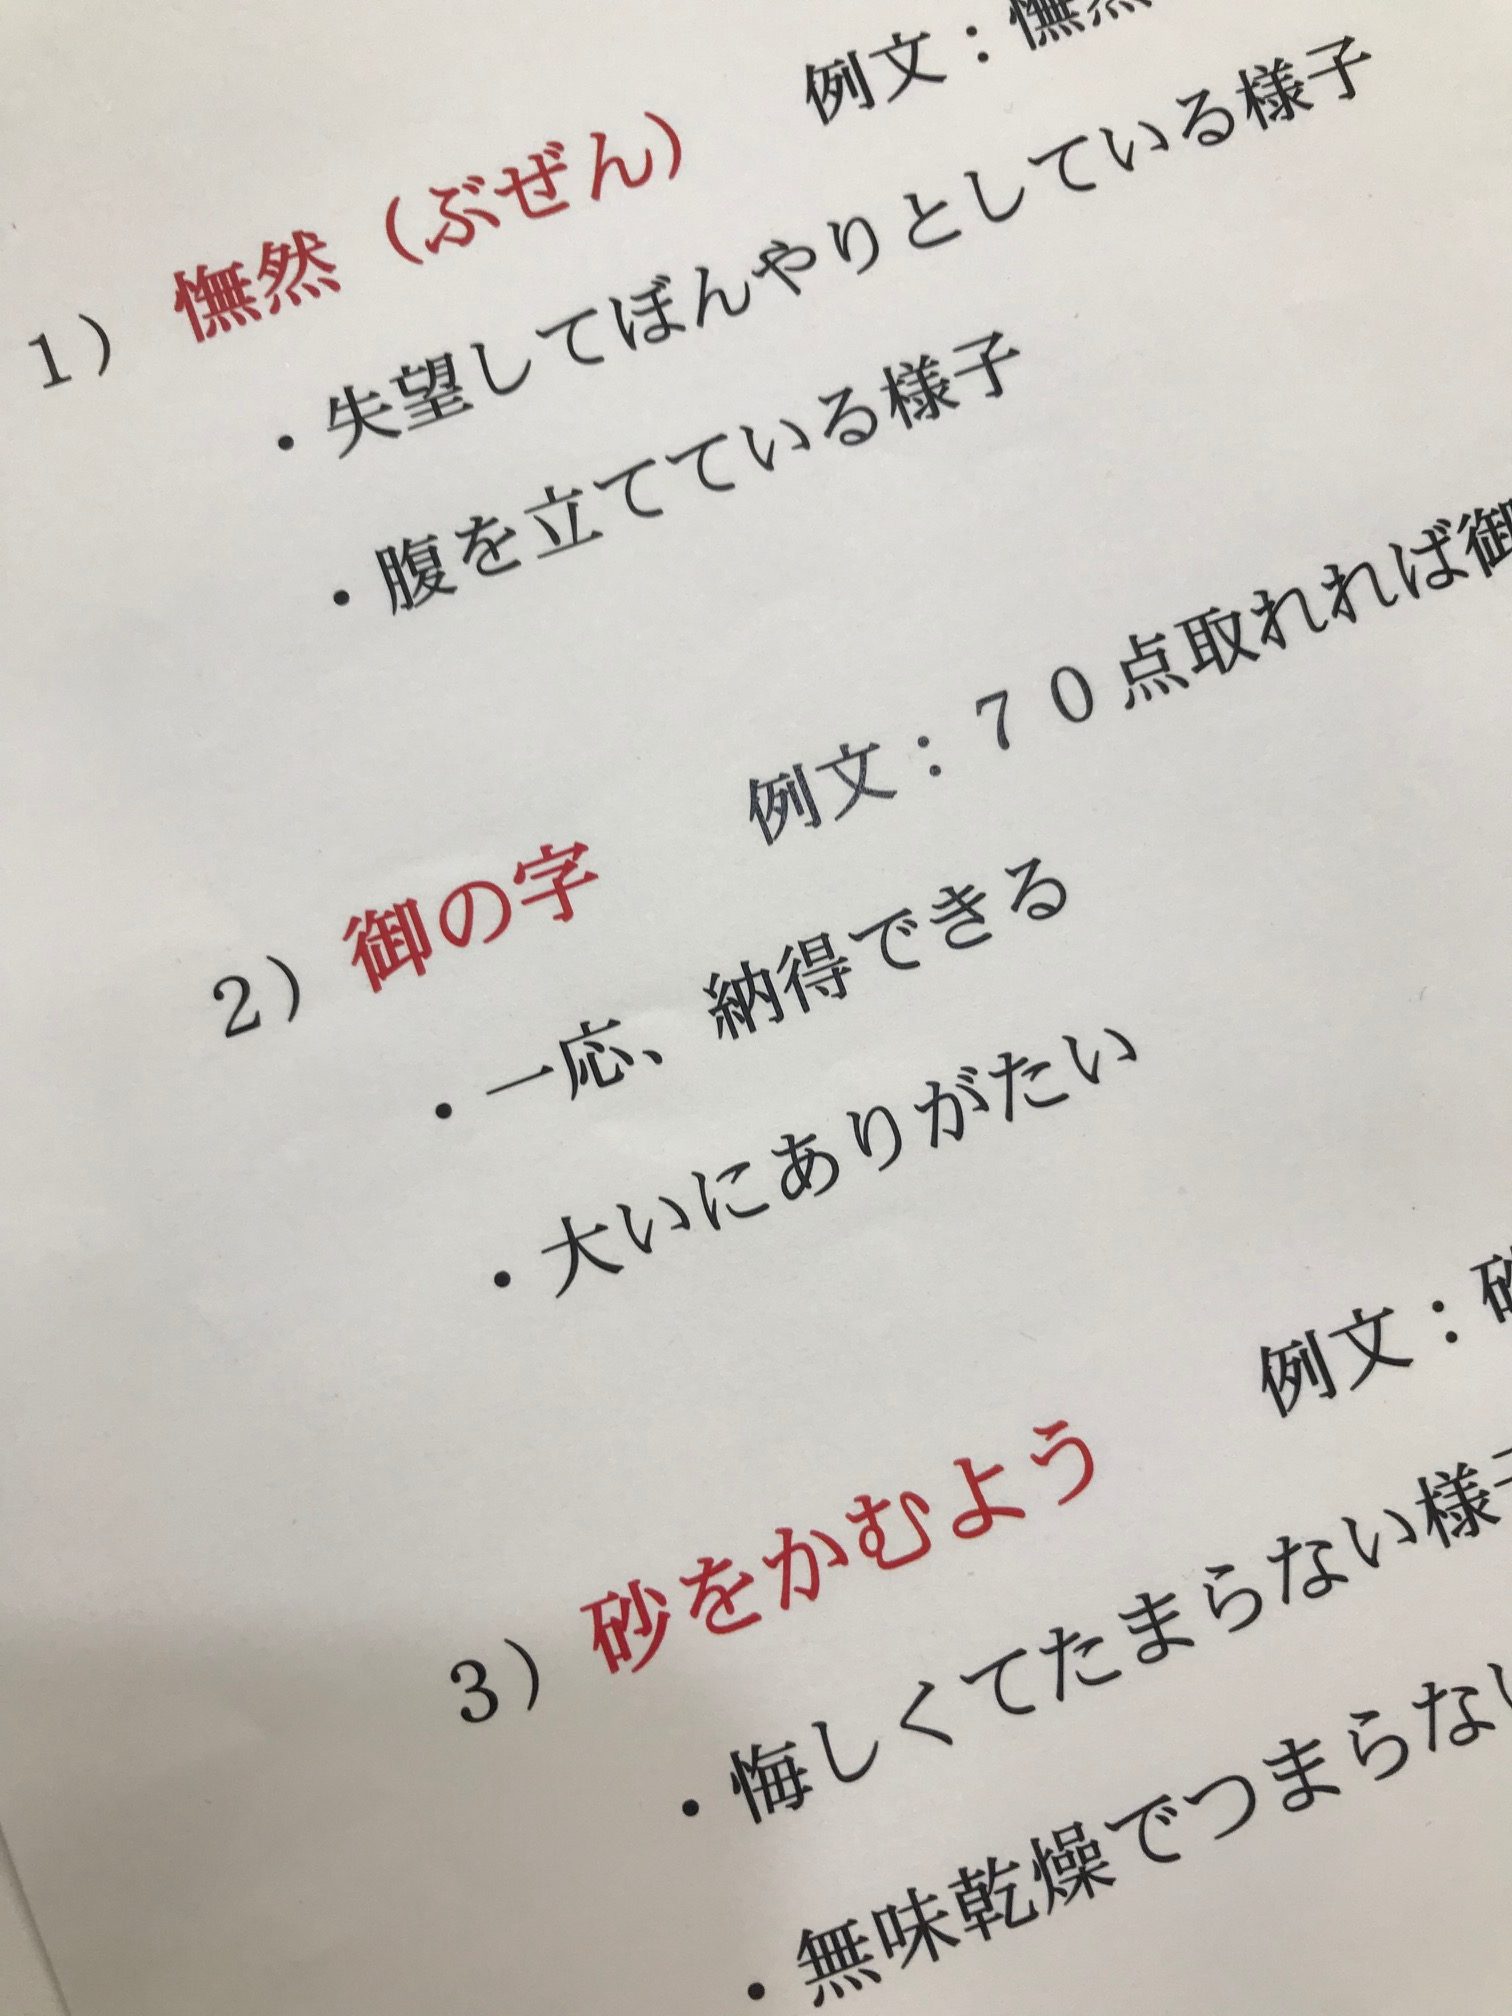 1） 憮然（ぶぜん） 例文：憮然
・失望してぼんやりとしている様子
・腹を立てている様子
2） 御の字 例文：７０点取れれば御
・一応、納得できる
・大いにありがたい
3） 砂をかむよう 例文：砂
・悔しくてたまらない様子
・無味乾燥でつまらない